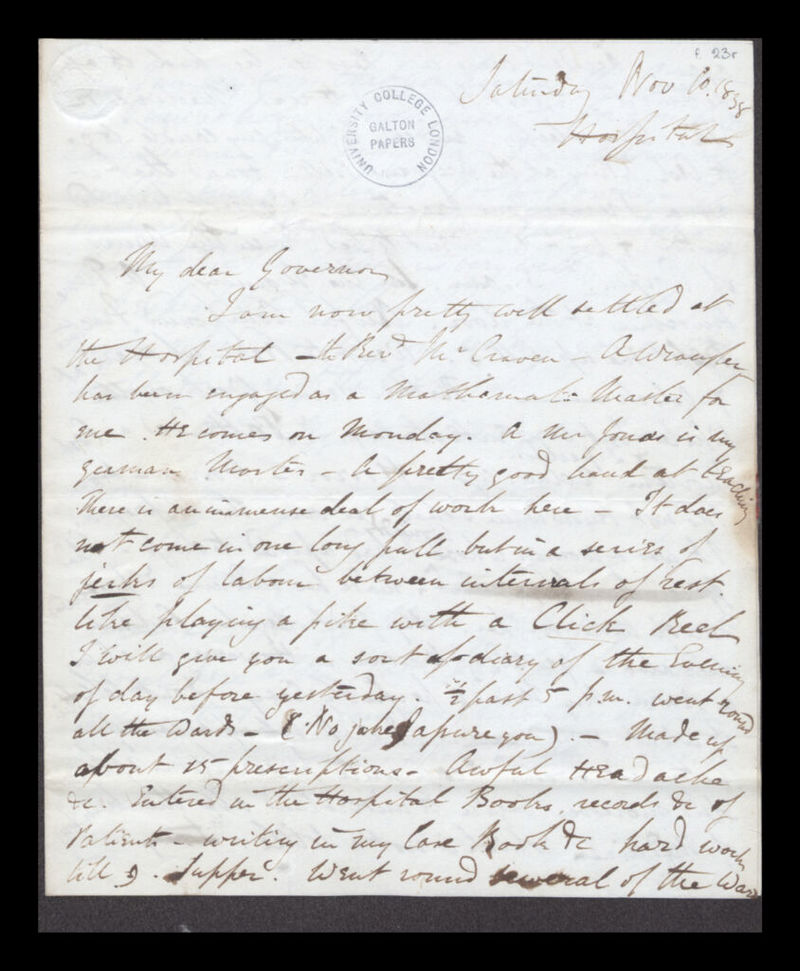 f. 23r
Saturday Nov 10. 1838
Hospital
UNIVERSITY COLLEGE LONDON
GALTON
PAPERS
My dear Governor
I am now pretty well settled at
the Hospital – the Revd Mr Craven – A Wrangler
has been engaged as a Mathematl Master for
me. He comes on Monday. A Mr Jones is my
german Master – A pretty good hand at teaching
There is an immense deal of work here – It does
not come in one long pull but in a series of
jerks of labour between intervals of rest.
like playing a pike with a Click Reel
I will give you a sort of diary of the Evening
of day before yesterday. ½ past 5 p.m. went round
all the Wards – (No joke I assure you). – Made up
about 15 prescriptions – Awful Headache
&c. Entered in the Hospital Books, records &c of
Patients – writing in my Case Book &c hard work
till 9. Supper. Went round several of the Wards